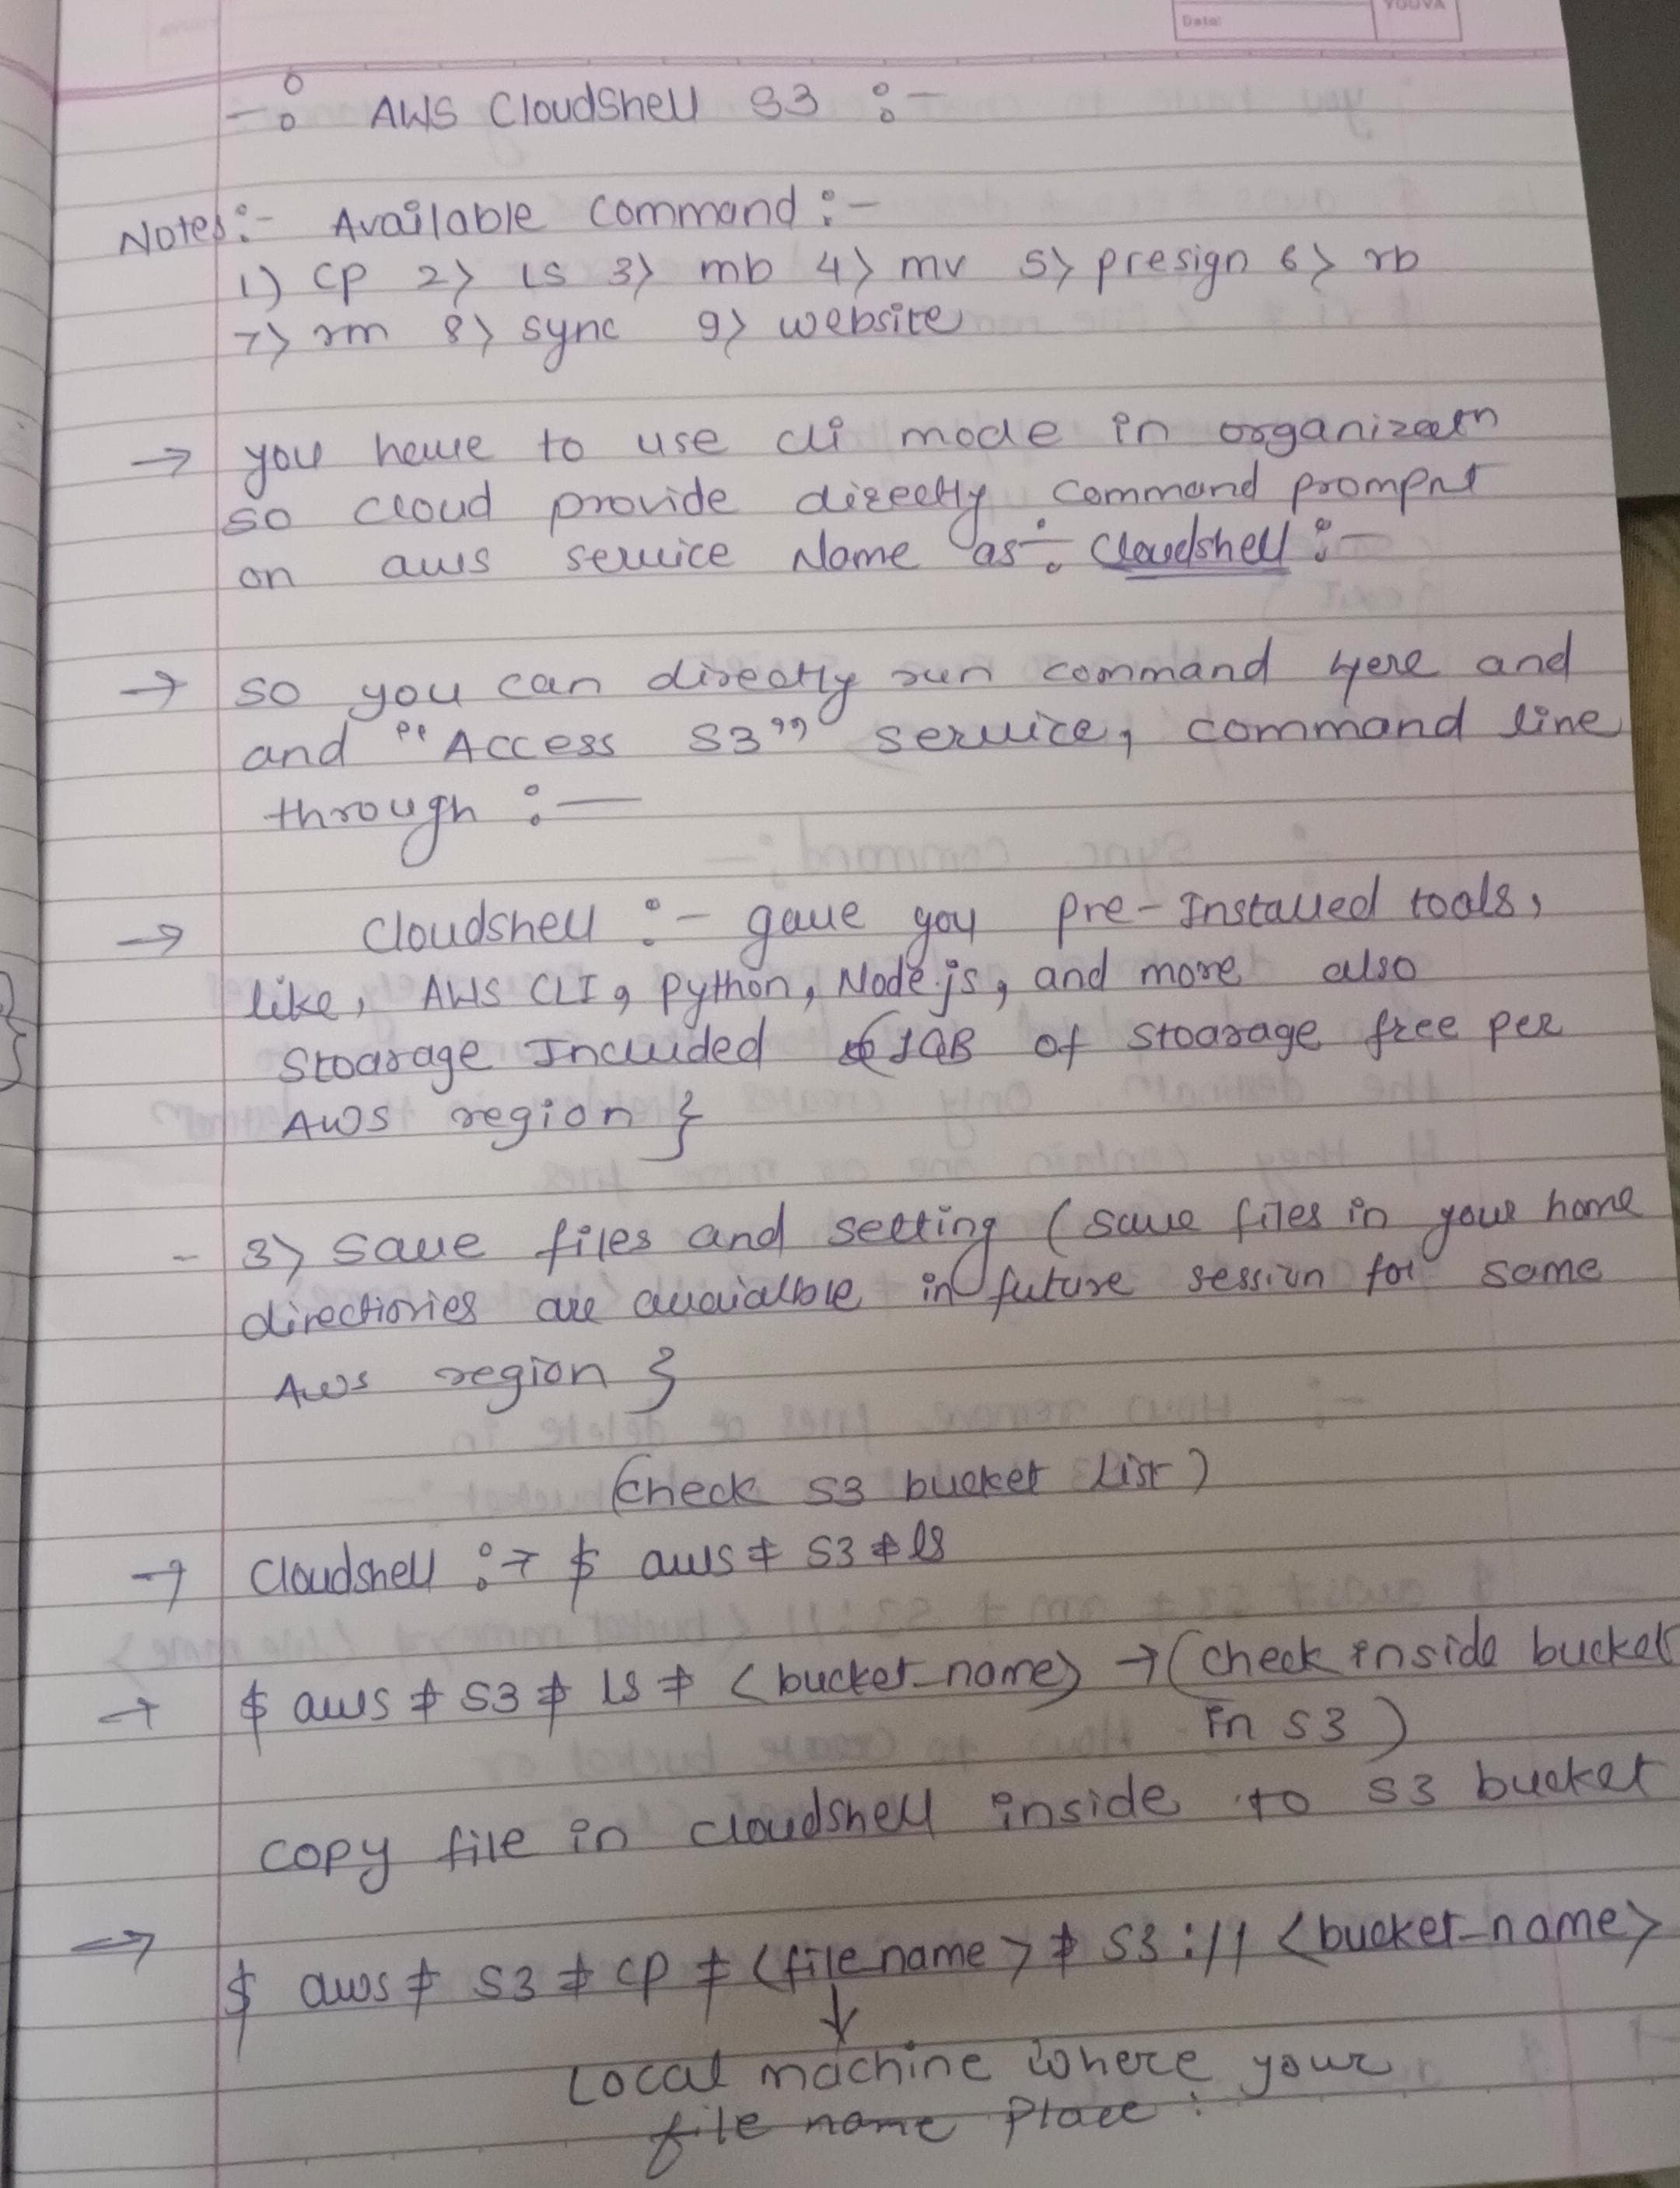 Date:
YOUVA
-: AWS Cloudshell S3 :-
Notes:- Available Command :-
1) cp 2) ls 3) mb 4) mv 5) presign 6) rb
7) rm 8) sync 9) website
→ you have to use cli mode in organizatn
so cloud provide directly command prompnt
on aws service Name as :- Cloudshell :-
→ so you can directly run command Here and
and "Access S3" service, command line
through :-
→ Cloudshell :- gave you pre-Installed tools,
like, AWS CLI, Python, Node.js, and more also
Stoarage Included {1GB of stoarage free per
AWS region }
- 3) Save files and setting (save files in your home
directiories are avaialble in future session for same
Aws region }
(Check S3 bucket List)
→ Cloudshell :→ $ aws ≠ S3 ≠ ls
→ $ aws ≠ S3 ≠ ls ≠ <bucket_name> → (check inside bucket
in S3)
copy file in cloudshell inside to S3 bucket
→ $ aws ≠ S3 ≠ cp ≠ <file name> ≠ S3 :// <bucket_name>
↓
Local machine where your
file name Place :